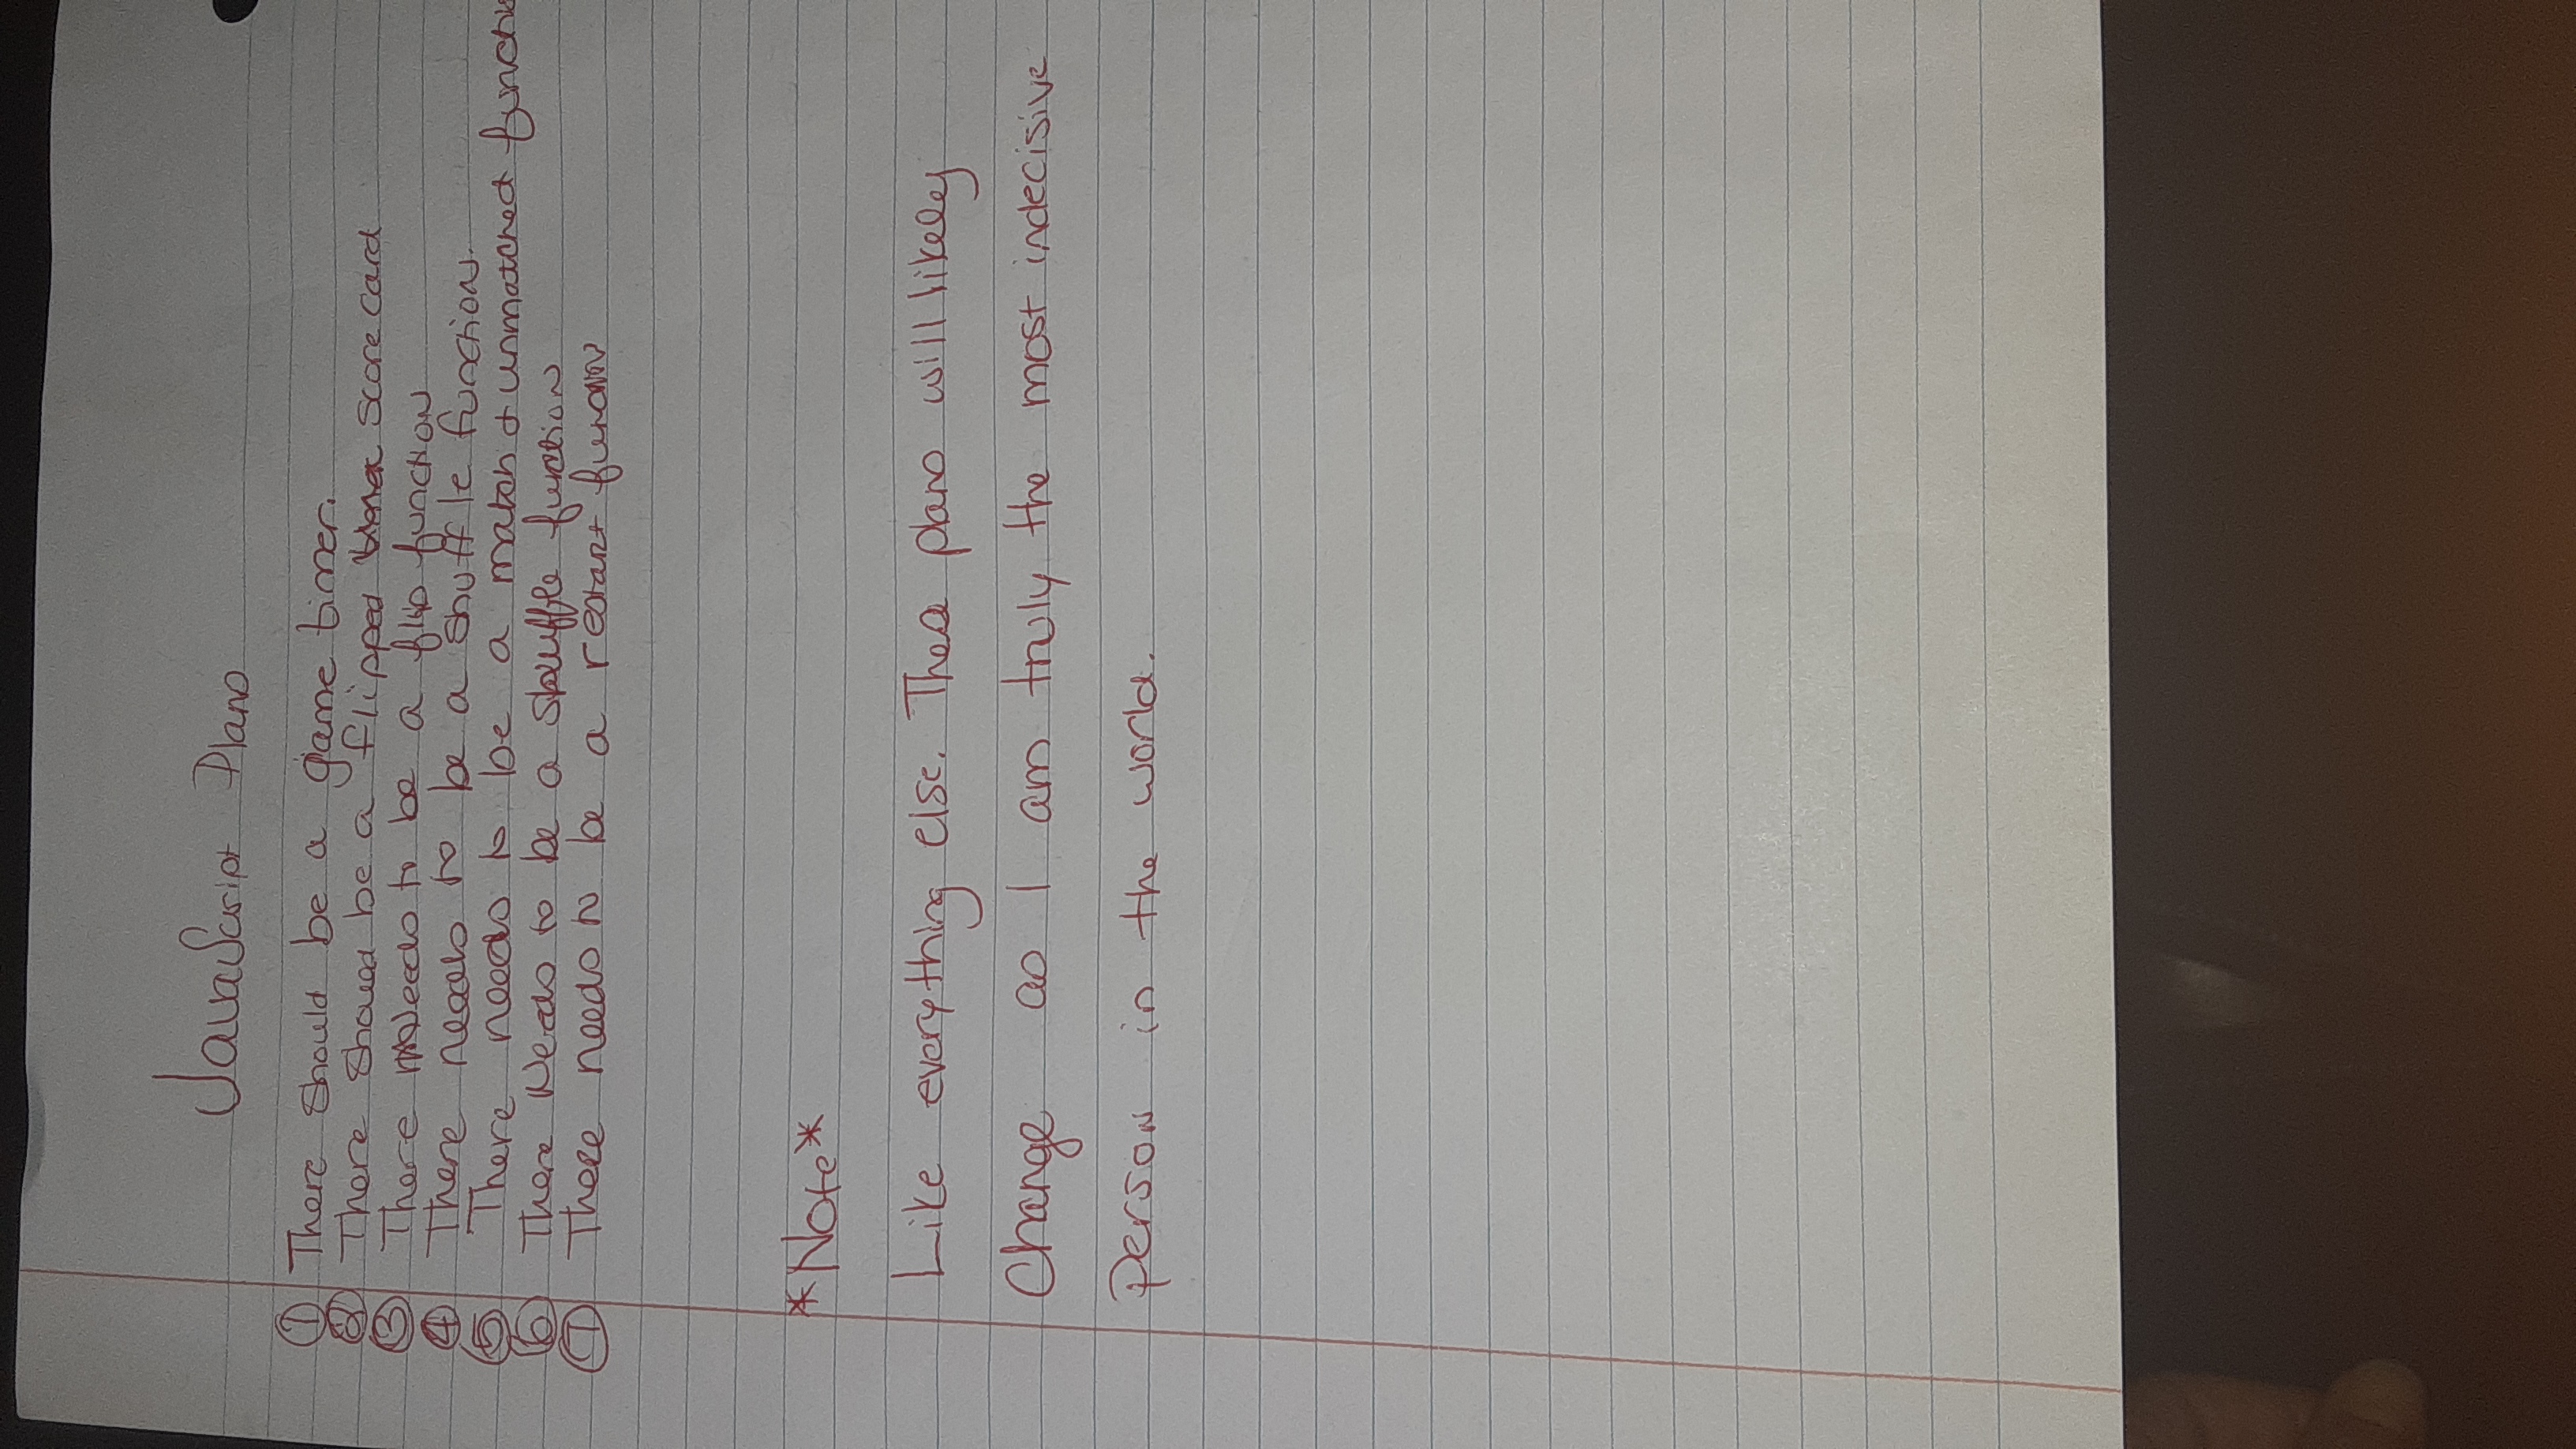 JavaScript Plans
① There should be a game timer.
② There should be a flipped score card
③ There Needs to be a flip function
④ There needs to be a shuffle function.
⑤ There needs to be a match + unmatched functi
⑥ There Needs to be a shuffle function
⑦ There needs to be a restart function
*Note*
Like everything else. These plans will likely
Change as I am truly the most indecisive
person in the world.